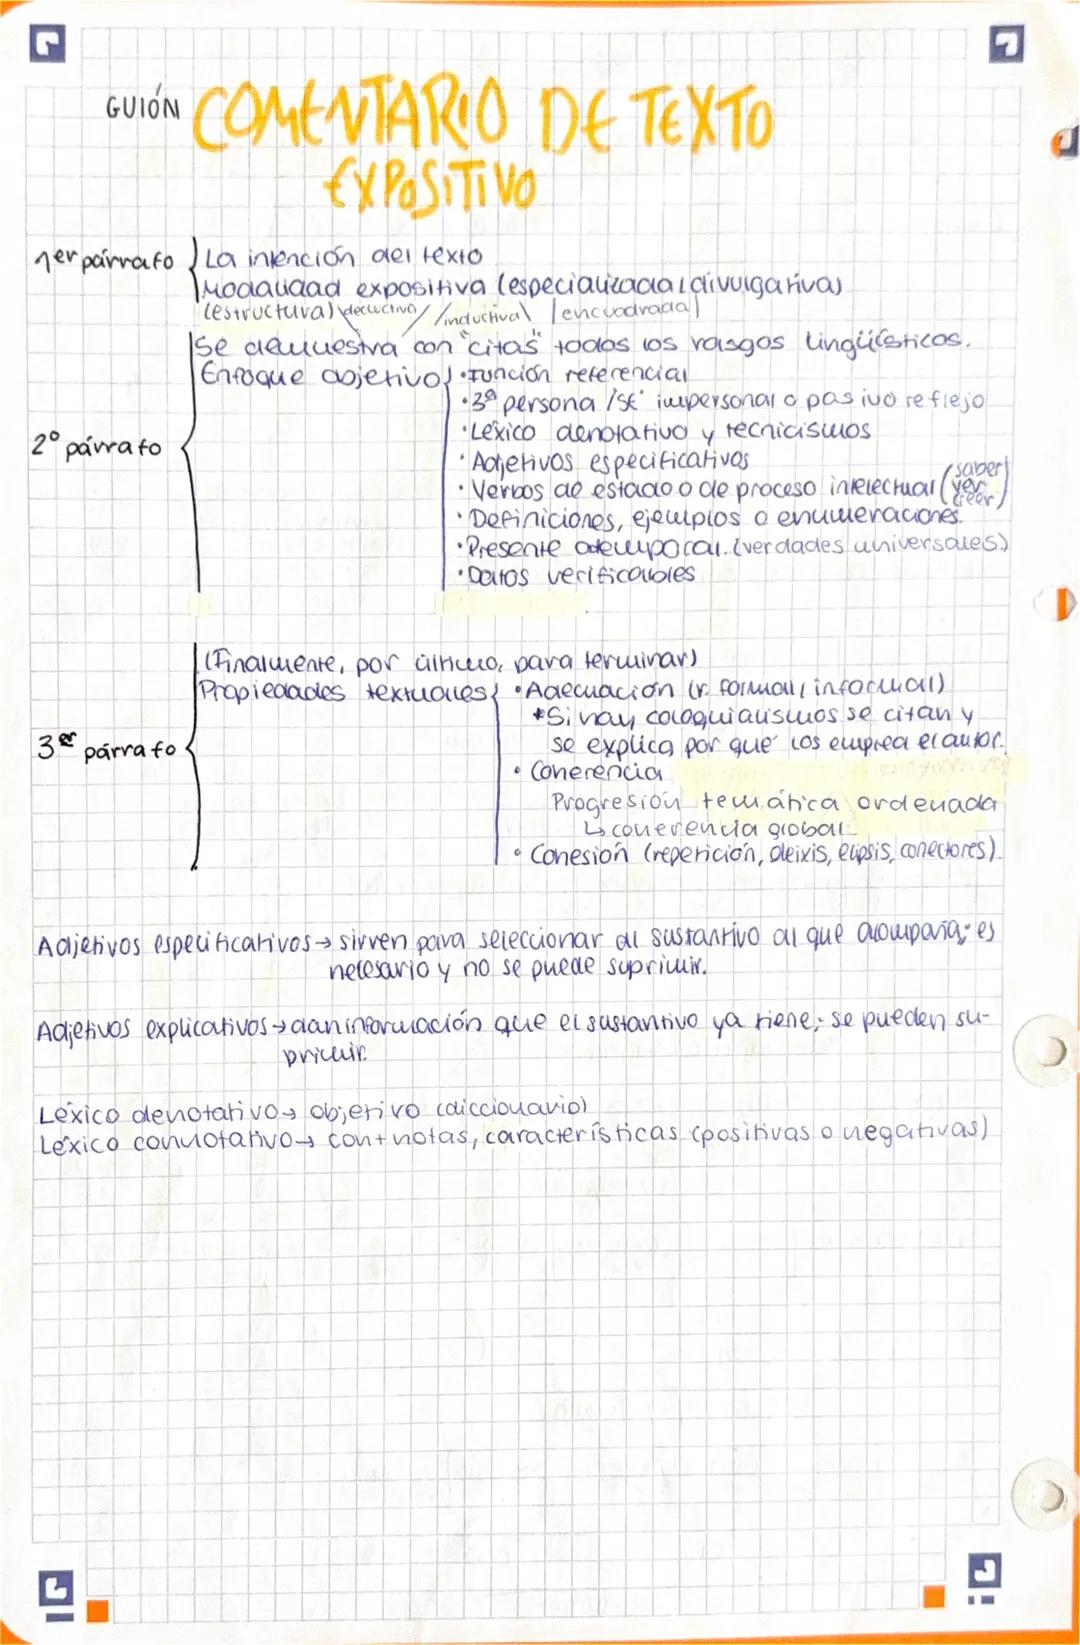 GUIÓN COMENTARIO DE TEXTO
EXPOSITIVO
1er párrafo
La intención del texto
Modalidad expositiva (especializada, divulgativa)
(estructura) deductiva / inductiva \ encuadrada
2º párrafo
Se demuestra con "citas" todos los rasgos lingüísticos.
Enfoque objetivo
•Función referencial
•3ª persona / "se" impersonal o pasivo reflejo
•Léxico denotativo y tecnicismos
•Adjetivos especificativos
•Verbos de estado o de proceso intelectual (saber, ver, creer)
•Definiciones, ejemplos o enumeraciones.
•Presente atemporal. (verdades universales)
•Datos verificables
3er párrafo
(Finalmente, por último, para terminar)
Propiedades textuales
•Adecuación (r. formal, informal)
*Si hay coloquialismos se citan y
se explica por qué los emplea el autor.
•Coherencia
Progresión temática ordenada
↳ coherencia global
•Cohesión (repetición, deixis, elipsis, conectores).
Adjetivos especificativos → sirven para seleccionar al sustantivo al que acompaña; es
necesario y no se puede suprimir.
Adjetivos explicativos → dan información que el sustantivo ya tiene; se pueden su-
primir.
Léxico denotativo → objetivo (diccionario)
Léxico connotativo → con + notas, características (positivas o negativas)